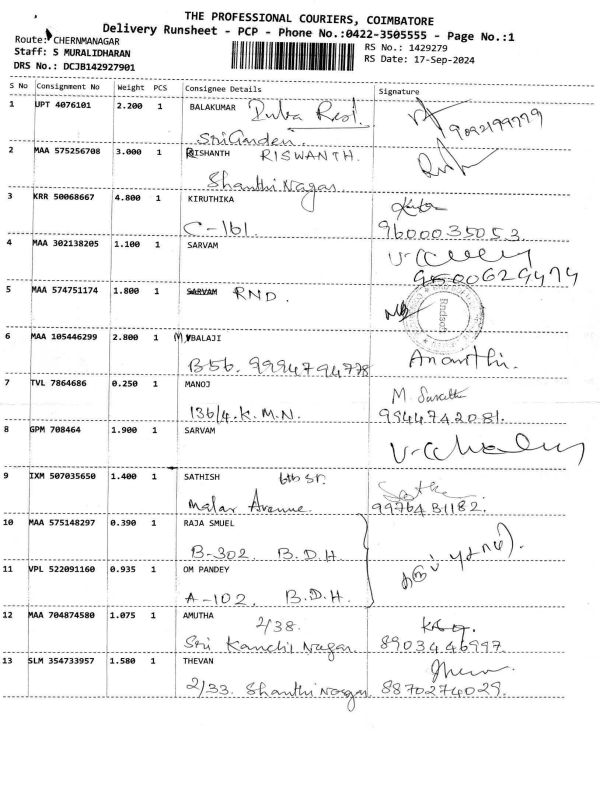 THE PROFESSIONAL COURIERS, COIMBATORE
Delivery Runsheet - PCP - Phone No.:0422-3505555 - Page No.:1
Route: CHERNMANAGAR
RS No.: 1429279
Staff: S MURALIDHARAN
RS Date: 17-Sep-2024
DRS No.: DCJB142927901
S No Consignment No Weight PCS Consignee Details Signature
1 UPT 4076101 2.200 1 BALAKUMAR
Sri Garden.
2 MAA 575256708 3.000 1 RISHANTH RISWANTH.
Shanthi Nagar.
3 KRR 50068667 4.800 1 KIRUTHIKA
C-161. 9600035053
4 MAA 302138205 1.100 1 SARVAM
9500629474
5 MAA 574751174 1.800 1 SARVAM RND.
Rndsoft
6 MAA 105446299 2.800 1 (M) VBALAJI
B56. 9994794778 Ananthi.
7 TVL 7864686 0.250 1 MANOJ
136/4. K.M.N. 9944742081.
8 GPM 708464 1.900 1 SARVAM
9 IXM 507035650 1.400 1 SATHISH 6th St.
Malar Avenue. 9976481182.
10 MAA 575148297 0.390 1 RAJA SMUEL
B-302. B.D.H.
11 VPL 522091160 0.935 1 OM PANDEY
A-102. B.D.H.
12 MAA 704874580 1.075 1 AMUTHA
2/38.
Sri Kanchi Nagar. 8903446997.
13 SLM 354733957 1.580 1 THEVAN
2/33. Shanthi Nagar. 8870274029.